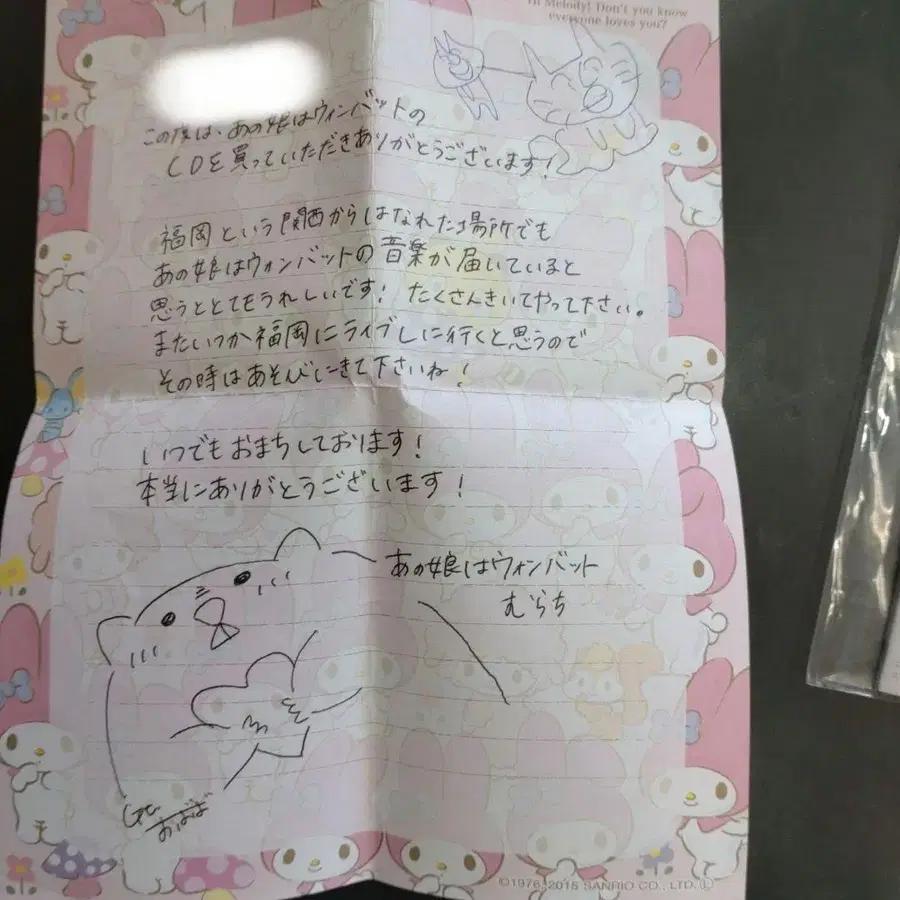 Hi Melody! Don't you know
everyone loves you?
この度は、あの娘はウィンバットの
CDを買っていただきありがとうございます!
福岡という関西からはなれた場所でも
あの娘はウォンバットの音楽が届いていると
思うととてもうれしいです! たくさんきいてやって下さい。
またいつか福岡にライブしに行くと思うので
その時はあそびにきて下さいね!
いつでもおまちしております!
本当にありがとうございます!
あの娘はウォンバット
むらち
おばば
©1976, 2015 SANRIO CO., LTD. Ⓛ